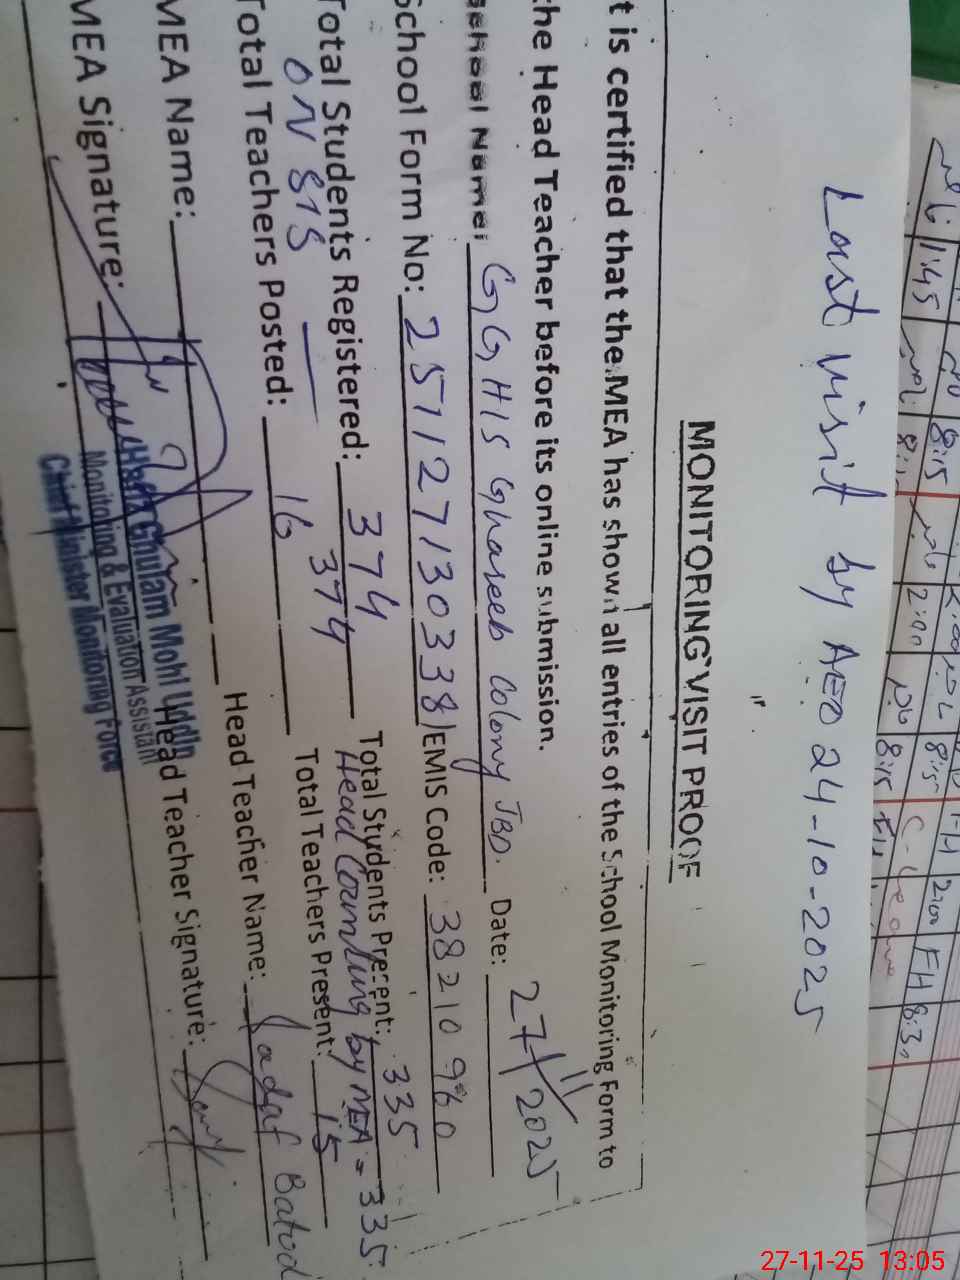 Last visit by AEO 24-10-2025
MONITORING VISIT PROOF
t is certified that the MEA has shown all entries of the School Monitoring Form to
the Head Teacher before its online submission.
School Name: GGHS Ghareeb Colony JBD. Date: 27/11/2025
School Form No: 2571271303381 EMIS Code: 38210960
Total Students Registered: 374 Total Students Precent: 335
ON SIS 374 Head Counting by MEA = 335
Total Teachers Posted: 16 Total Teachers Present: 15
MEA Name: Head Teacher Name: Sadaf Batool
MEA Signature: Head Teacher Signature:
Hafiz Ghulam Mohi Uddin
Monitoring & Evaluation Assistant
Chief Minister Monitoring Force
1:45 8:15 2:00 8:15 8:15
C-Leave 2:00 FH 8:30
27-11-25 13:05